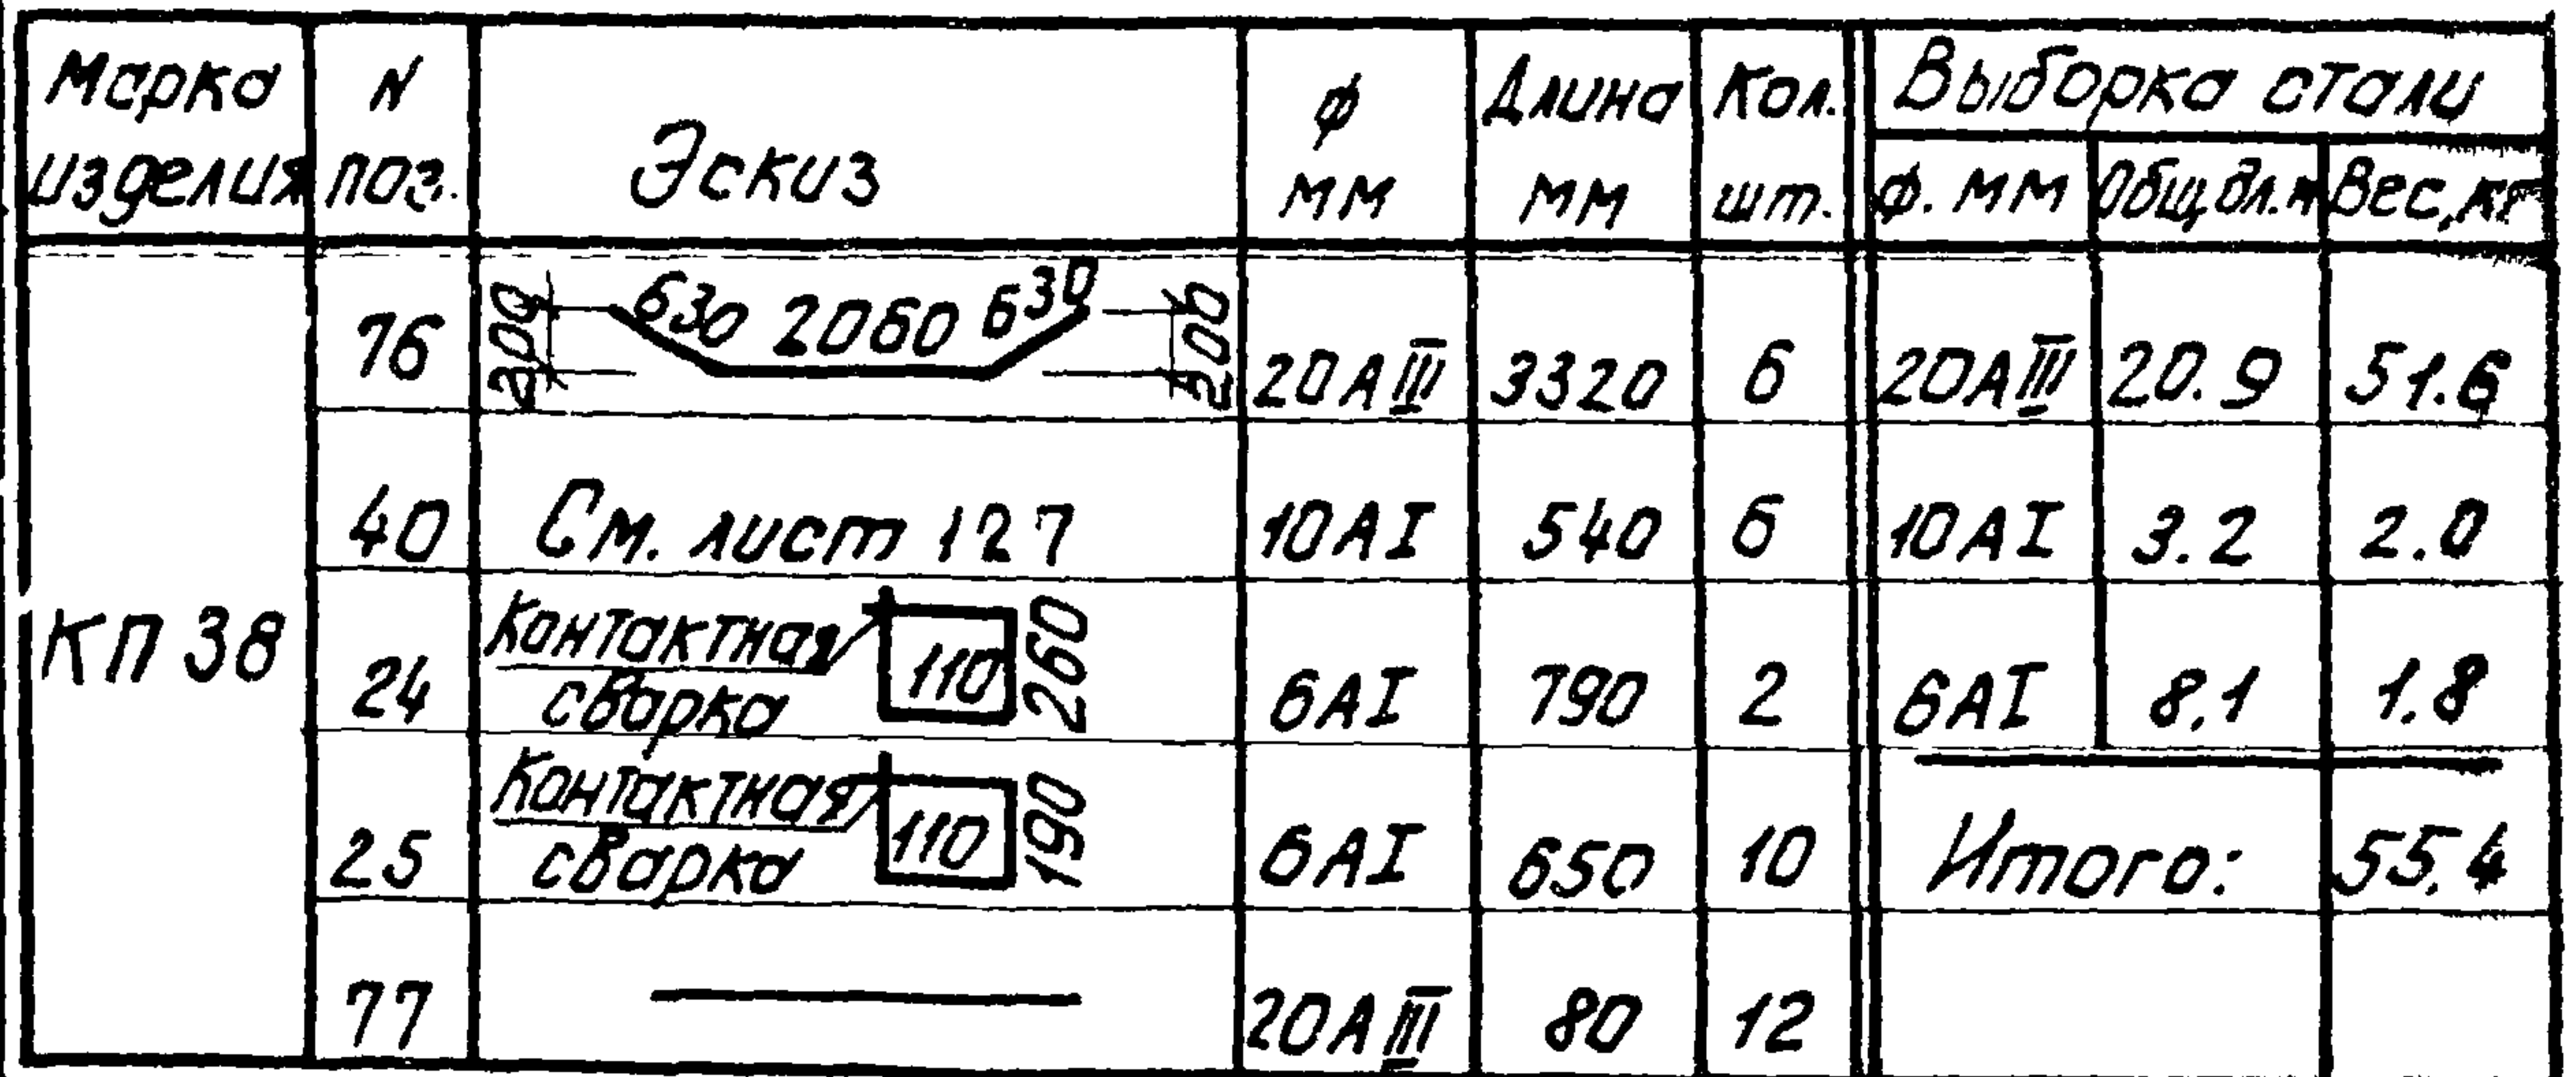 Марка изделия
N поз.
Эскиз
ф мм
Длина мм
Кол. шт.
Выборка стали
ф. мм
Общ. дл. м
Вес, кг
КП 38
76
200 630 2060 630 200
20АIII 3320 6 20АIII 20.9 51.6
40 См. лист 127 10АI 540 6 10АI 3.2 2.0
24 Контактная сварка 110 260 6АI 790 2 6АI 8.1 1.8
25 Контактная сварка 110 190 6АI 650 10 Итого: 55.4
77 20АIII 80 12